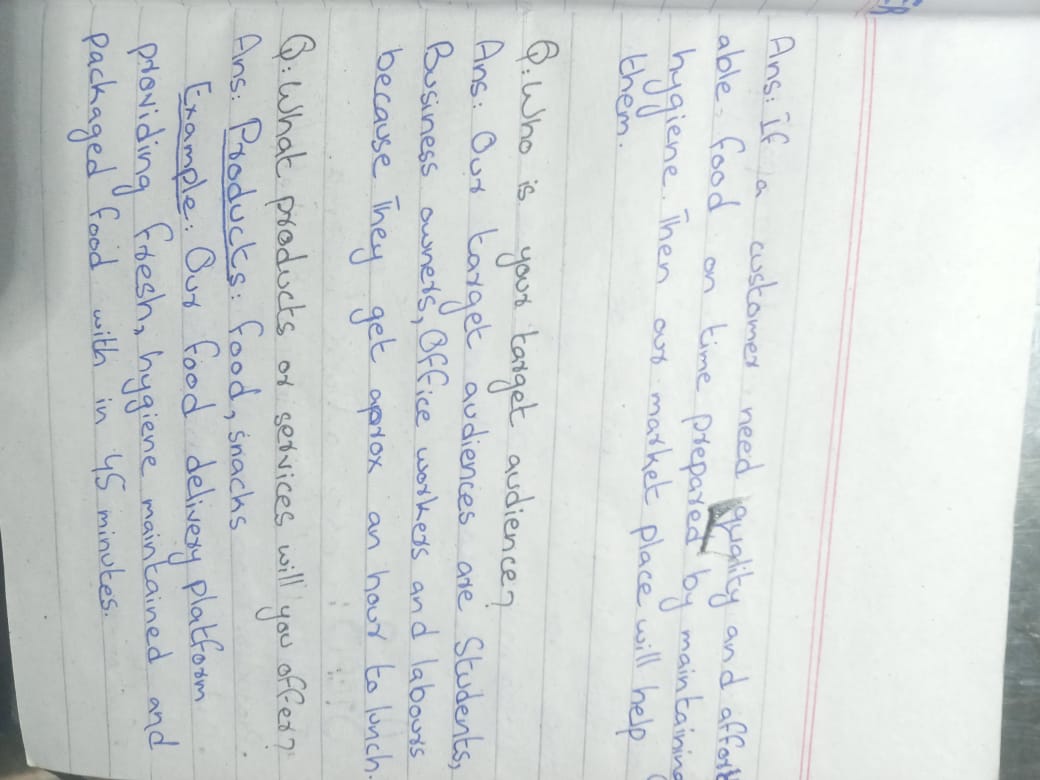 Ans: if a customer need quality and afford
able. food on time prepared by maintaining
hygiene. Then our market place will help
them.
Q: Who is your target audience?
Ans: Our target audiences are Students,
Business owners, Office workers and labours
because They get aprox an hour to lunch.
Q: What products or services will you offer?
Ans: Products: food, snacks
Example: Our food delivery platform
providing fresh, hygiene maintained and
packaged food with in 45 minutes.